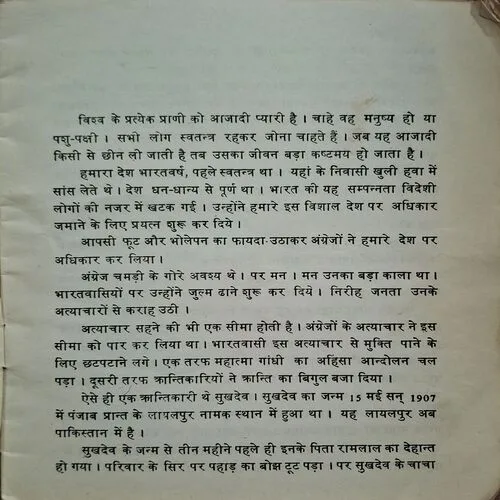 विश्व के प्रत्येक प्राणी को आजादी प्यारी है । चाहे वह मनुष्य हो या
पशु-पक्षी । सभी लोग स्वतन्त्र रहकर जीना चाहते हैं । जब यह आजादी
किसी से छीन ली जाती है तब उसका जीवन बड़ा कष्टमय हो जाता है ।
हमारा देश भारतवर्ष, पहले स्वतन्त्र था । यहां के निवासी खुली हवा में
सांस लेते थे । देश धन-धान्य से पूर्ण था । भारत की यह सम्पन्नता विदेशी
लोगों की नजर में खटक गई । उन्होंने हमारे इस विशाल देश पर अधिकार
जमाने के लिए प्रयत्न शुरू कर दिये ।
आपसी फूट और भोलेपन का फायदा-उठाकर अंग्रेजों ने हमारे देश पर
अधिकार कर लिया ।
अंग्रेज चमड़ी के गोरे अवश्य थे । पर मन । मन उनका बड़ा काला था ।
भारतवासियों पर उन्होंने जुल्म ढाने शुरू कर दिये । निरीह जनता उनके
अत्याचारों से कराह उठी ।
अत्याचार सहने की भी एक सीमा होती है । अंग्रेजों के अत्याचार ने इस
सीमा को पार कर लिया था । भारतवासी इस अत्याचार से मुक्ति पाने के
लिए छटपटाने लगे । एक तरफ महात्मा गांधी का अहिंसा आन्दोलन चल
पड़ा । दूसरी तरफ क्रान्तिकारियों ने क्रान्ति का बिगुल बजा दिया ।
ऐसे ही एक क्रान्तिकारी थे सुखदेव । सुखदेव का जन्म 15 मई सन् 1907
में पंजाब प्रान्त के लायलपुर नामक स्थान में हुआ था । यह लायलपुर अब
पाकिस्तान में है ।
सुखदेव के जन्म से तीन महीने पहले ही इनके पिता रामलाल का देहान्त
हो गया । परिवार के सिर पर पहाड़ का बोझ टूट पड़ा । पर सुखदेव के चाचा